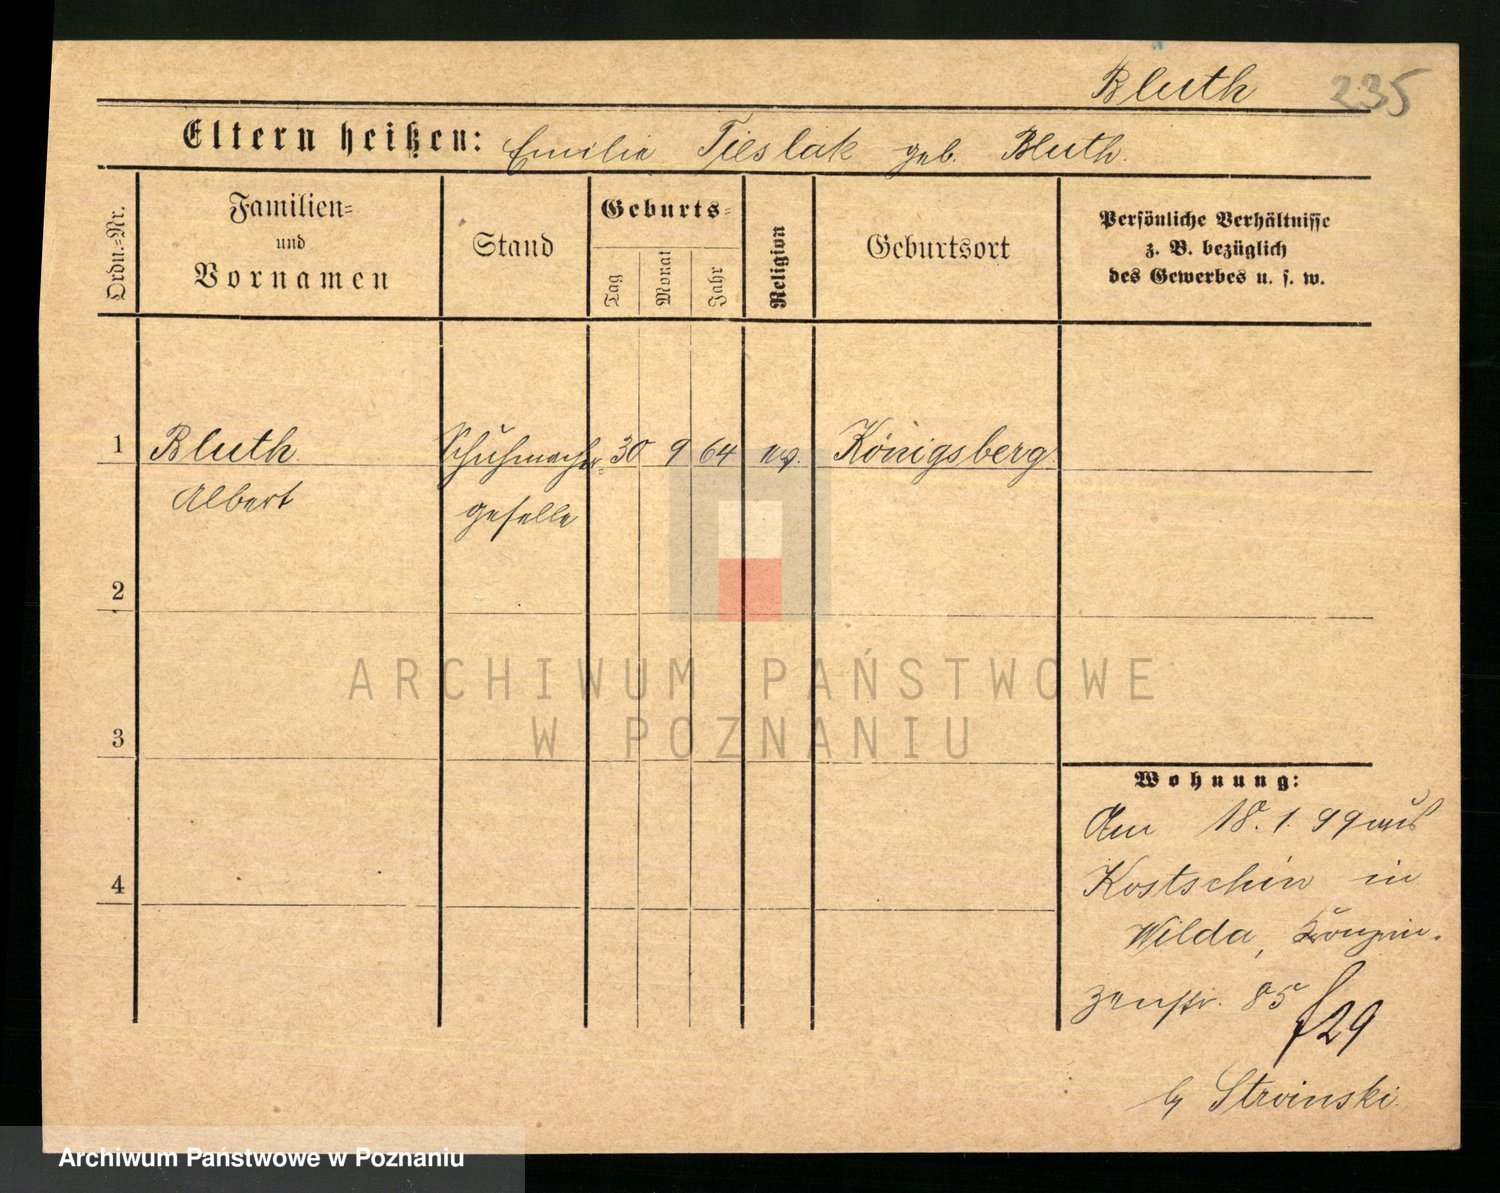 Bluth 235
Eltern heißen: Emilie Tieslak geb. Bluth.
Ordn.-Nr.
Familien-
und
Vornamen
Stand
Geburts-
Tag
Monat
Jahr
Religion
Geburtsort
Persönliche Verhältnisse
z. B. bezüglich
des Gewerbes u. s. w.
1 Bluth Schuhmacher- 30 9 64 ev. Königsberg
Albert geselle
2
3
4
Wohnung:
Am 18.1.99 aus
Kostschin in
Wilda, Kronprin-
zenstr. 85
f29
by Stroinski
ARCHIWUM PAŃSTWOWE
W POZNANIU
Archiwum Państwowe w Poznaniu